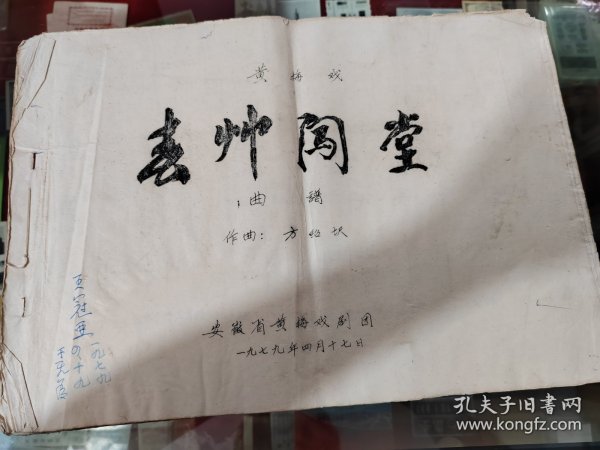 黄梅戏
春艸闯堂
曲谱
作曲：方绍
安徽省黄梅戏剧团
一九七九年四月十七日
王冠亚
一九七九
の十九
于安庆
孔夫子旧书网
www.kongfz.com